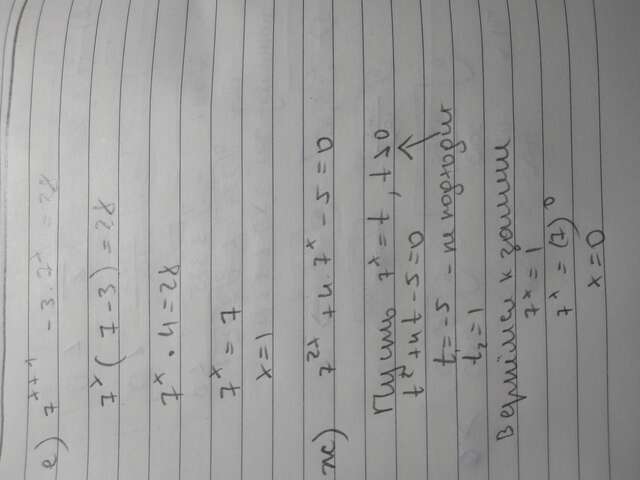 е) 7^(x+1) - 3·7^x = 28
7^x (7-3) = 28
7^x · 4 = 28
7^x = 7
x = 1
ж) 7^(2x) + 4·7^x - 5 = 0
Пусть 7^x = t, t>0
t² + 4t - 5 = 0
t₁ = -5 - не подходит
t₂ = 1
Вернёмся к замене
7^x = 1
7^x = (7)^0
x = 0